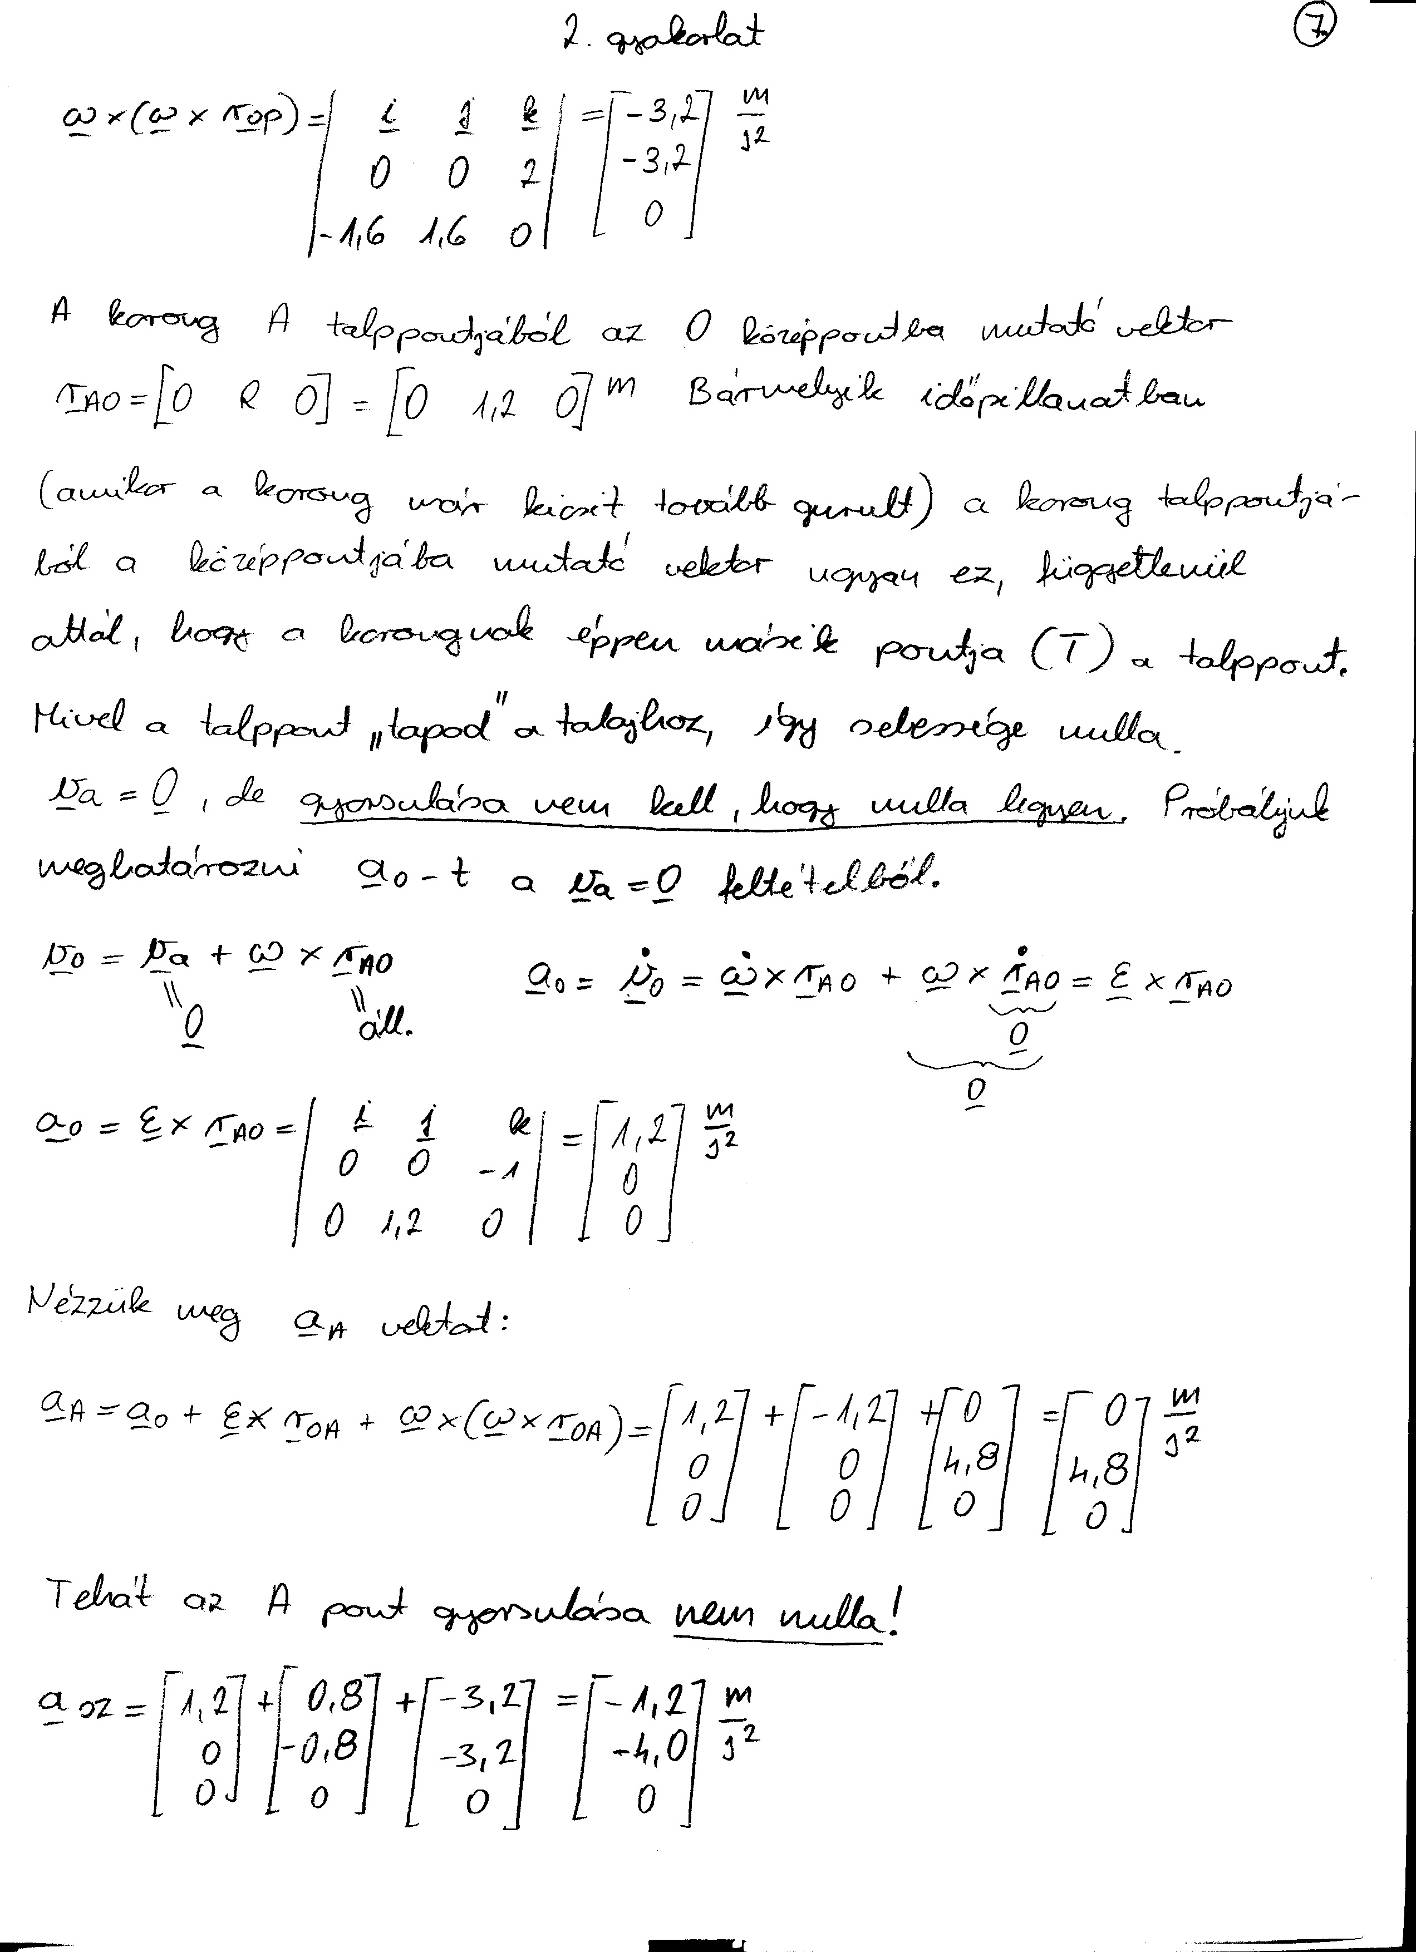 2. gyakorlat
7
ω×(ω×r_OP) = | i j k ; 0 0 2 ; -1,6 1,6 0 | = [-3,2 ; -3,2 ; 0] m/s²
A korong A talppontjából az O középpontba mutató vektor
r_AO = [0 R 0] = [0 1,2 0] m Bármelyik időpillanatban
(amikor a korong már kicsit tovább gurult) a korong talppontjá-
ból a középpontjába mutató vektor ugyan ez, függetlenül
attól, hogy a korongnak éppen másik pontja (T) a talppont.
Mivel a talppont „tapod" a talajhoz, így sebessége nulla.
v_a = 0, de gyorsulása nem kell, hogy nulla legyen. Próbáljuk
meghatározni a_0-t a v_a = 0 feltételből.
v_0 = v_a + ω × r_AO a_0 = v̇_0 = ω̇ × r_AO + ω × ṙ_AO = ε × r_AO
0 áll. 0
0
a_0 = ε × r_AO = | i j k ; 0 0 -1 ; 0 1,2 0 | = [1,2 ; 0 ; 0] m/s²
Nézzük meg a_A vektat:
a_A = a_0 + ε × r_OA + ω×(ω×r_OA) = [1,2 ; 0 ; 0] + [-1,2 ; 0 ; 0] + [0 ; 4,8 ; 0] = [0 ; 4,8 ; 0] m/s²
Tehát az A pont gyorsulása nem nulla!
a_02 = [1,2 ; 0 ; 0] + [0,8 ; -0,8 ; 0] + [-3,2 ; -3,2 ; 0] = [-1,2 ; -4,0 ; 0] m/s²